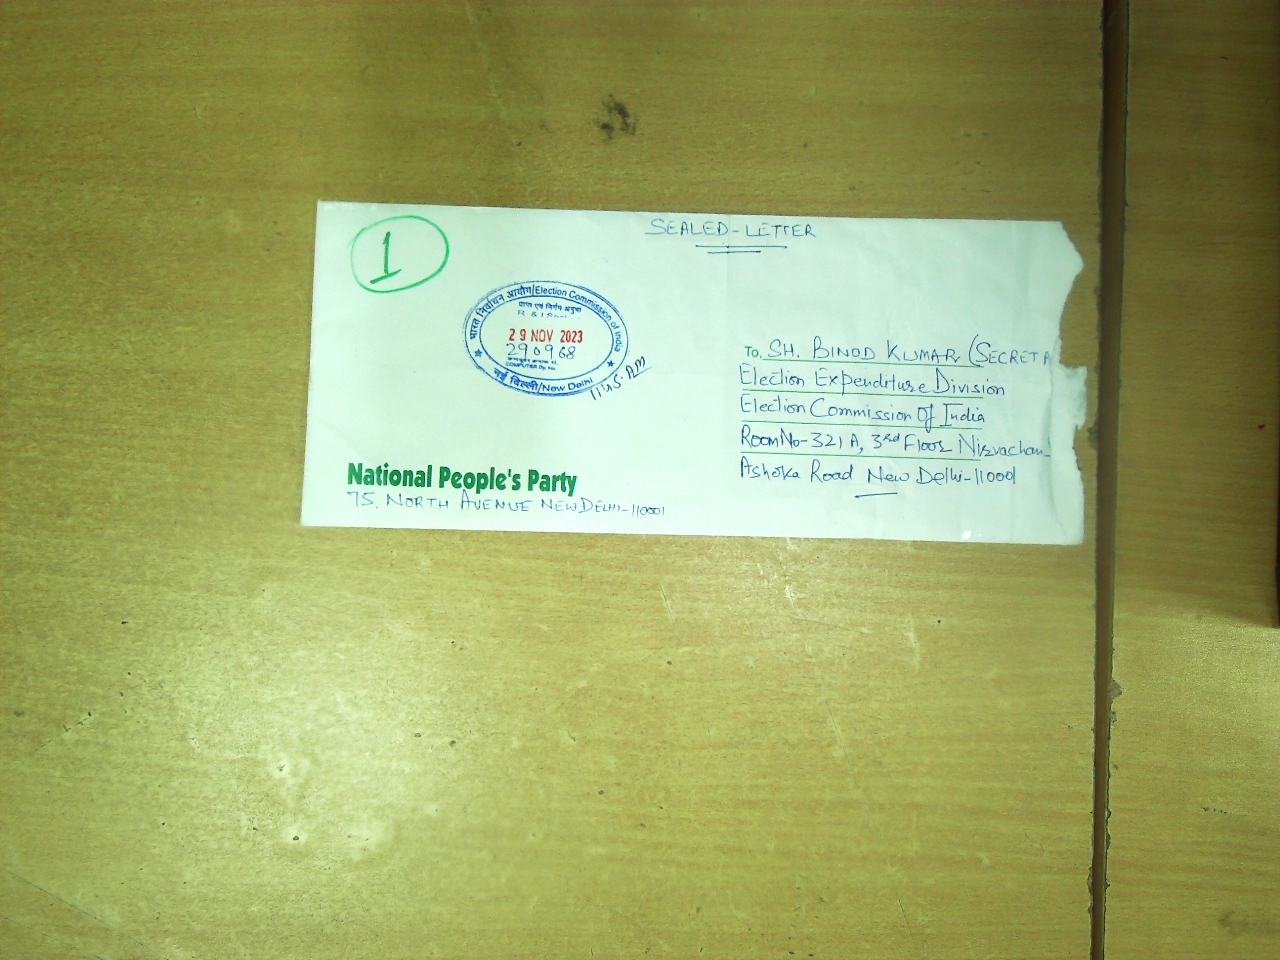 SEALED-LETTER
1
भारत निर्वाचन आयोग/Election Commission of India
29 NOV 2023
290968
COMPUTER Dy. No.
नई दिल्ली/New Delhi
11:45 AM
To, SH. BINOD KUMAR (SECRETA
Election Expenditure Division
Election Commission Of India
Room No-321 A, 3rd Floor Nirvachan
Ashoka Road New Delhi-110001
National People's Party
75, NORTH AVENUE NEW DELHI-110001